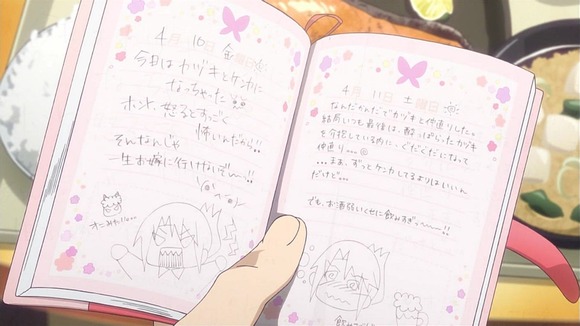 4月 10日 金曜日
今日はカヅキとケンカに
なっちゃった
ホント、怒るとすっごく
怖いんだから!!
そんなんじゃ
一生お嫁に行けないぞー!!
オニみたい
4月 11日 土曜日
なんだかんだでカヅキと仲直りした。
結局いつも最後は、酔っぱらったカヅキ
を介抱している内に、ぐだぐだになって
仲直り
…まぁ、ずっとケンカしてるよりはいいん
だけど…
でも、お酒弱いくせに飲みすぎ〜〜!!